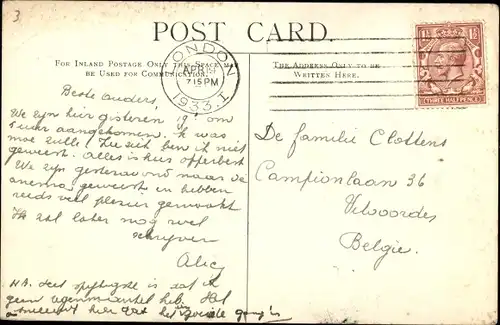 3
POST CARD.
FOR INLAND POSTAGE ONLY THIS SPACE MAY
BE USED FOR COMMUNICATION.
THE ADDRESS ONLY TO BE
WRITTEN HERE.
LONDON
APR
7 15 PM
1933.
THREE HALFPENCE
Beste ouders,
We zijn hier gisteren om
uur aangekomen. Ik was
moe zulle! Zee ziek ben ik niet
geweest. Alles is hier opperbest
We zijn gisteravond naar de
cinema geweest en hebben
reeds veel plezier gemaakt
Ik zal later nog wel
schrijven
Alice
N.B. is dat ik
geen regenmantel heb. Het
hier dat het
De familie Clottens
Campionlaan 36
Vilvoorde
Belgie.